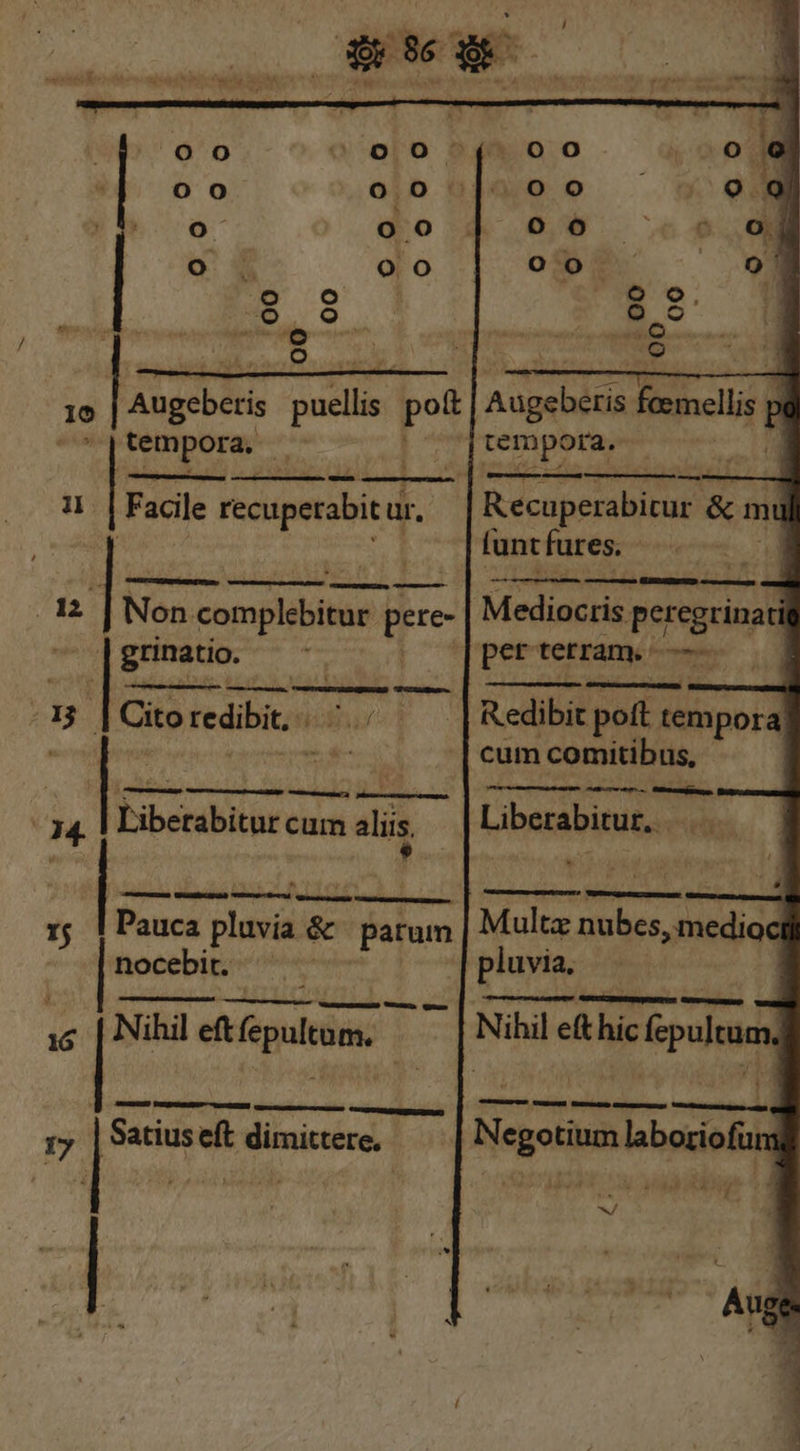 86
10 Augeberis puellis poſt
tempora.
Augeberis fœmellis po
tempora.
11 Facile recuperabitur.
Recuperabitur & mul
ſunt fures.
12 Non complebitur pere-
grinatio.
Mediocris peregrinatio
per terram.
13 Cito redibit.
Redibit poſt tempora
cum comitibus,
14 Liberabitur cum aliis.
Liberabitur.
15 Pauca pluvia & parum
nocebit.
Multæ nubes, mediocri
pluvia.
16 Nihil eſt ſepultum.
Nihil eſt hic ſepultum.
17 Satius eſt dimittere.
Negotium laborioſum
Auge-